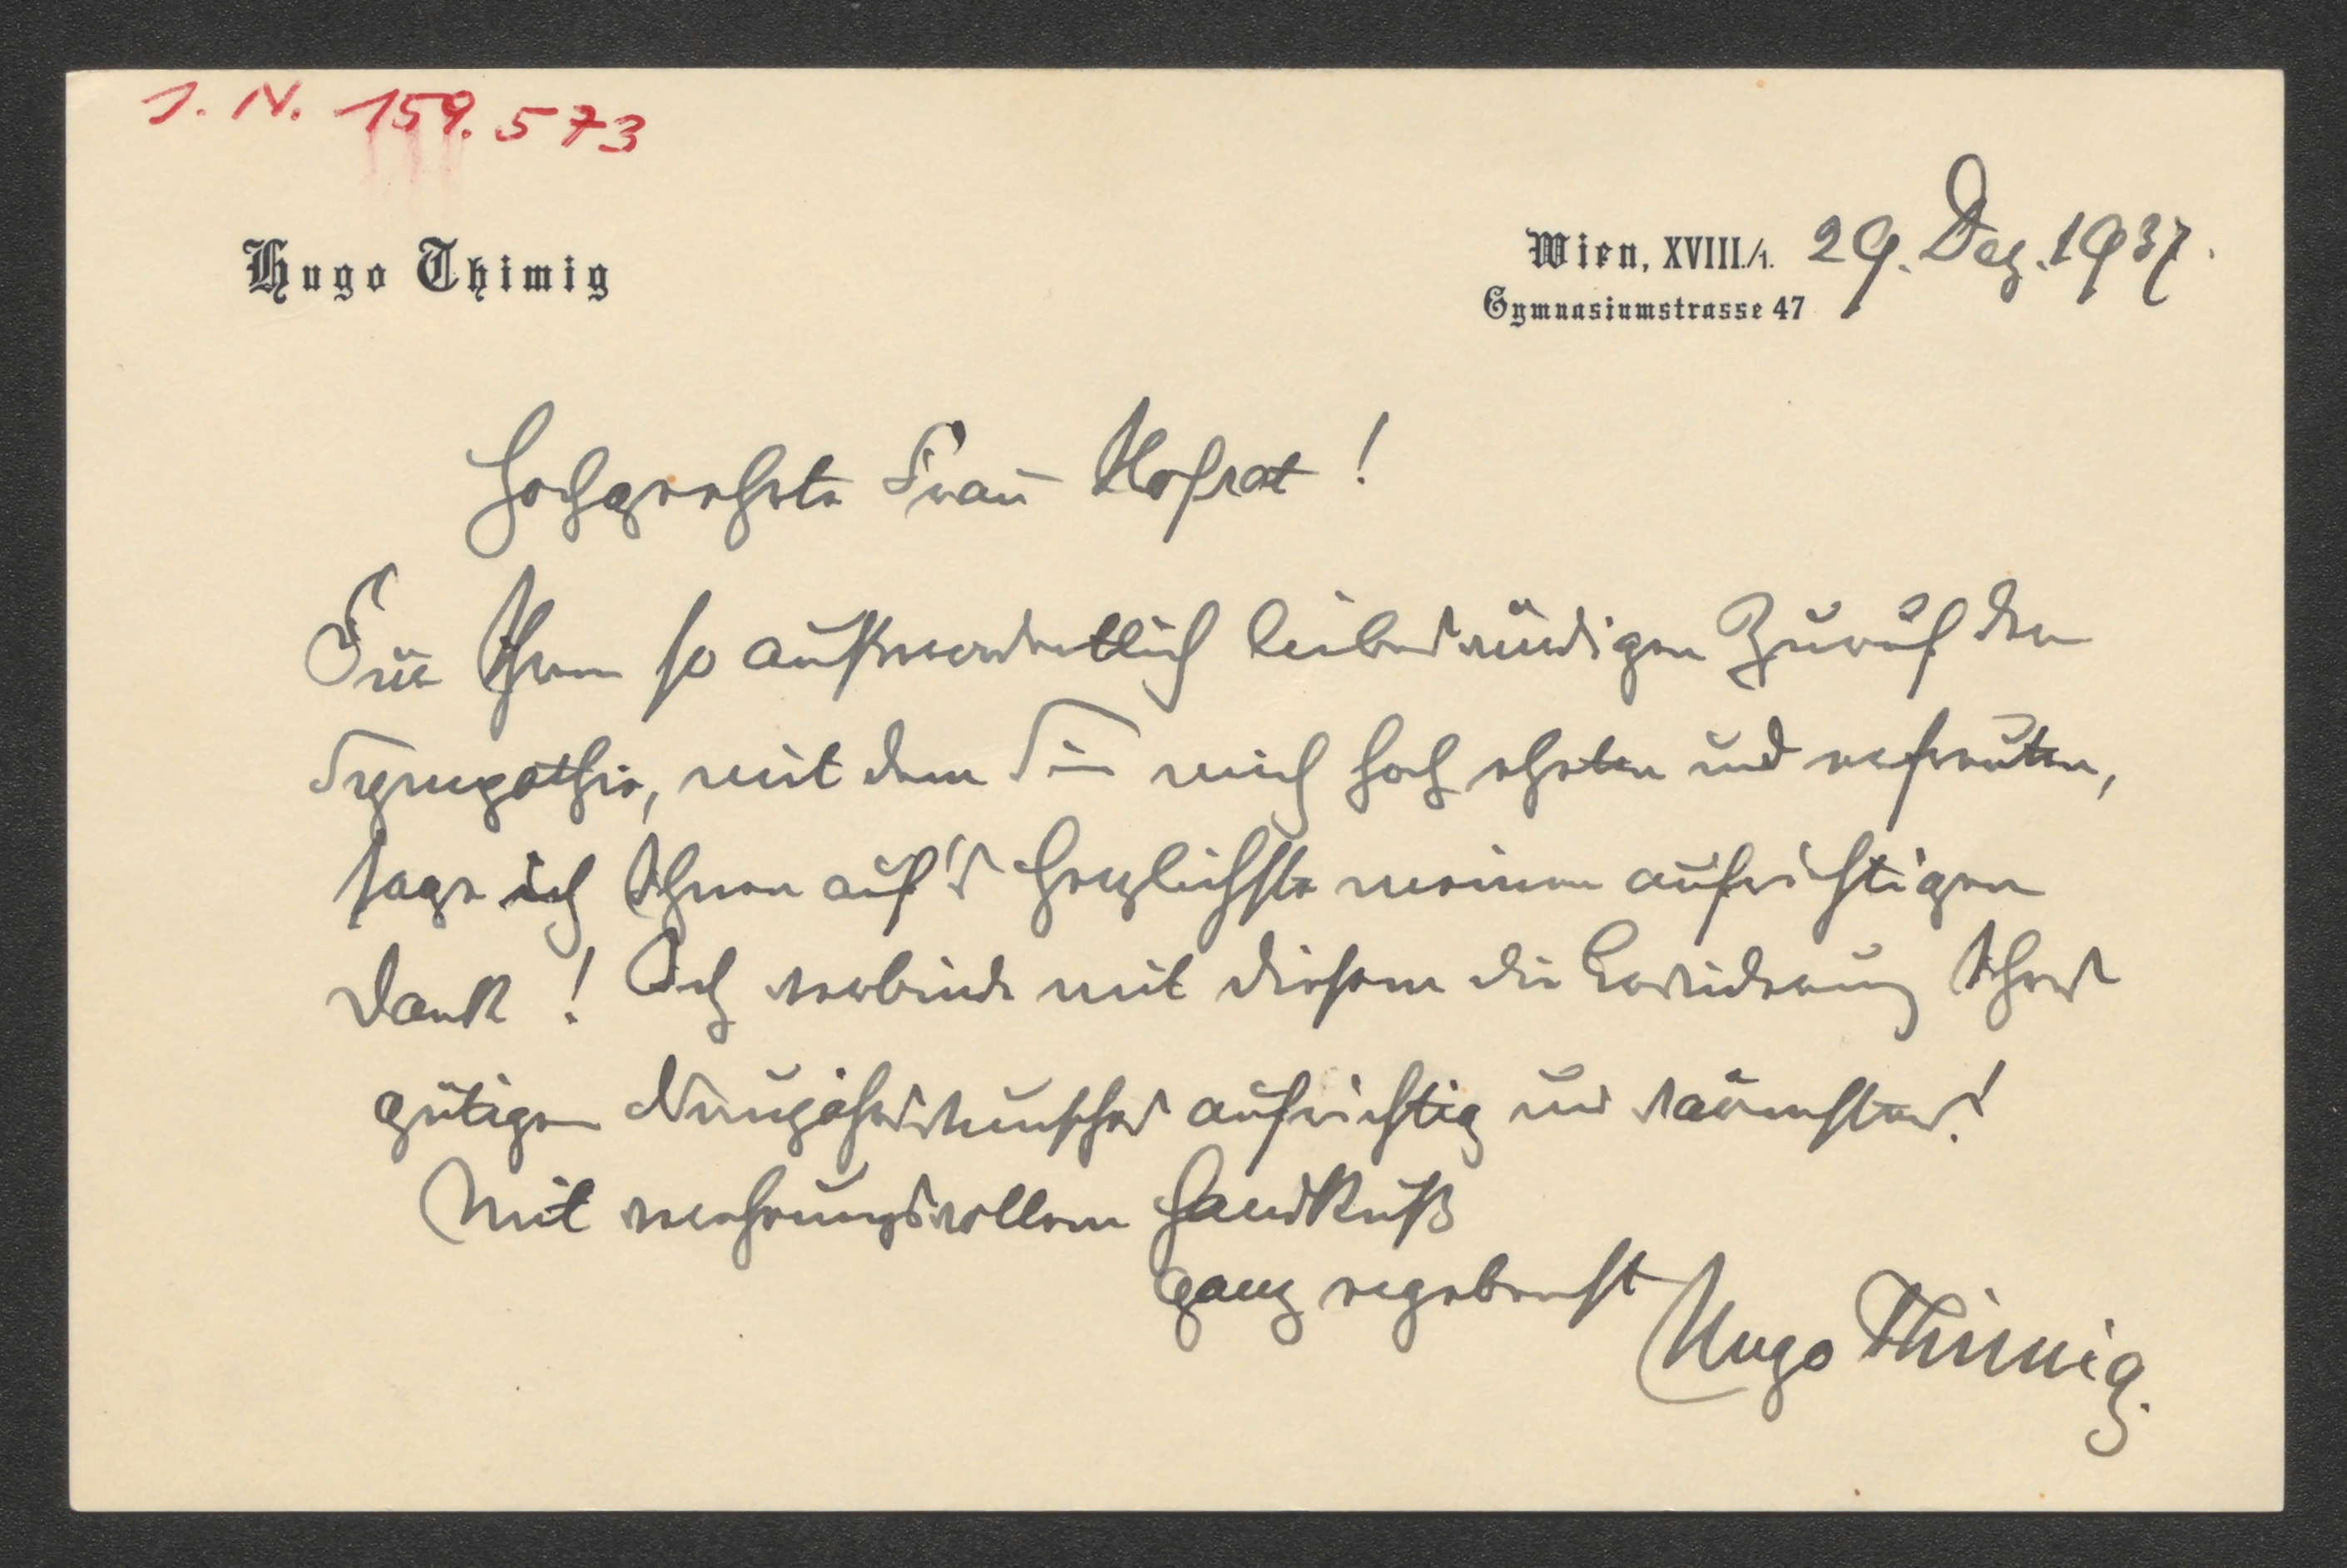 I. N. 159.573
Hugo Thimig
Wien, XVIII./1. 29. Dez. 1937.
Gymnasiumstrasse 47
Hochgeehrte Frau Hofrat!
Für Ihren so außerordentlich liebenswürdigen Zuruf der
Sympathie, mit dem Sie mich hoch ehrten und erfreuten,
sage ich Ihnen auf's Herzlichste meinen aufrichtigen
Dank! Ich verbinde mit diesem die Erwiderung Ihres
gütigen Neujahrswunsches aufrichtig und wärmstens!
Mit verehrungsvollem Handkuß
ganz ergebenst
Hugo Thimig.